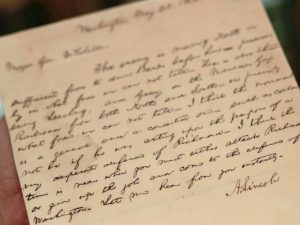 Washington May 25. 1862
Major Gen. McClellan
The enemy is moving North in
sufficient force to drive Banks before him in precisely
what force we can not tell. He is also threatening
Leesburg and Geary on the Manassas Gap
Railroad from both North and South in precisely
what force we can not tell. I think the movement
is a general and concerted one, such as could
not be if he was acting upon the purpose of a
very desperate defence of Richmond. I think the
time is near when you must either attack Richmond
or give up the job and come to the defence of
Washington. Let me hear from you instantly.
A. Lincoln